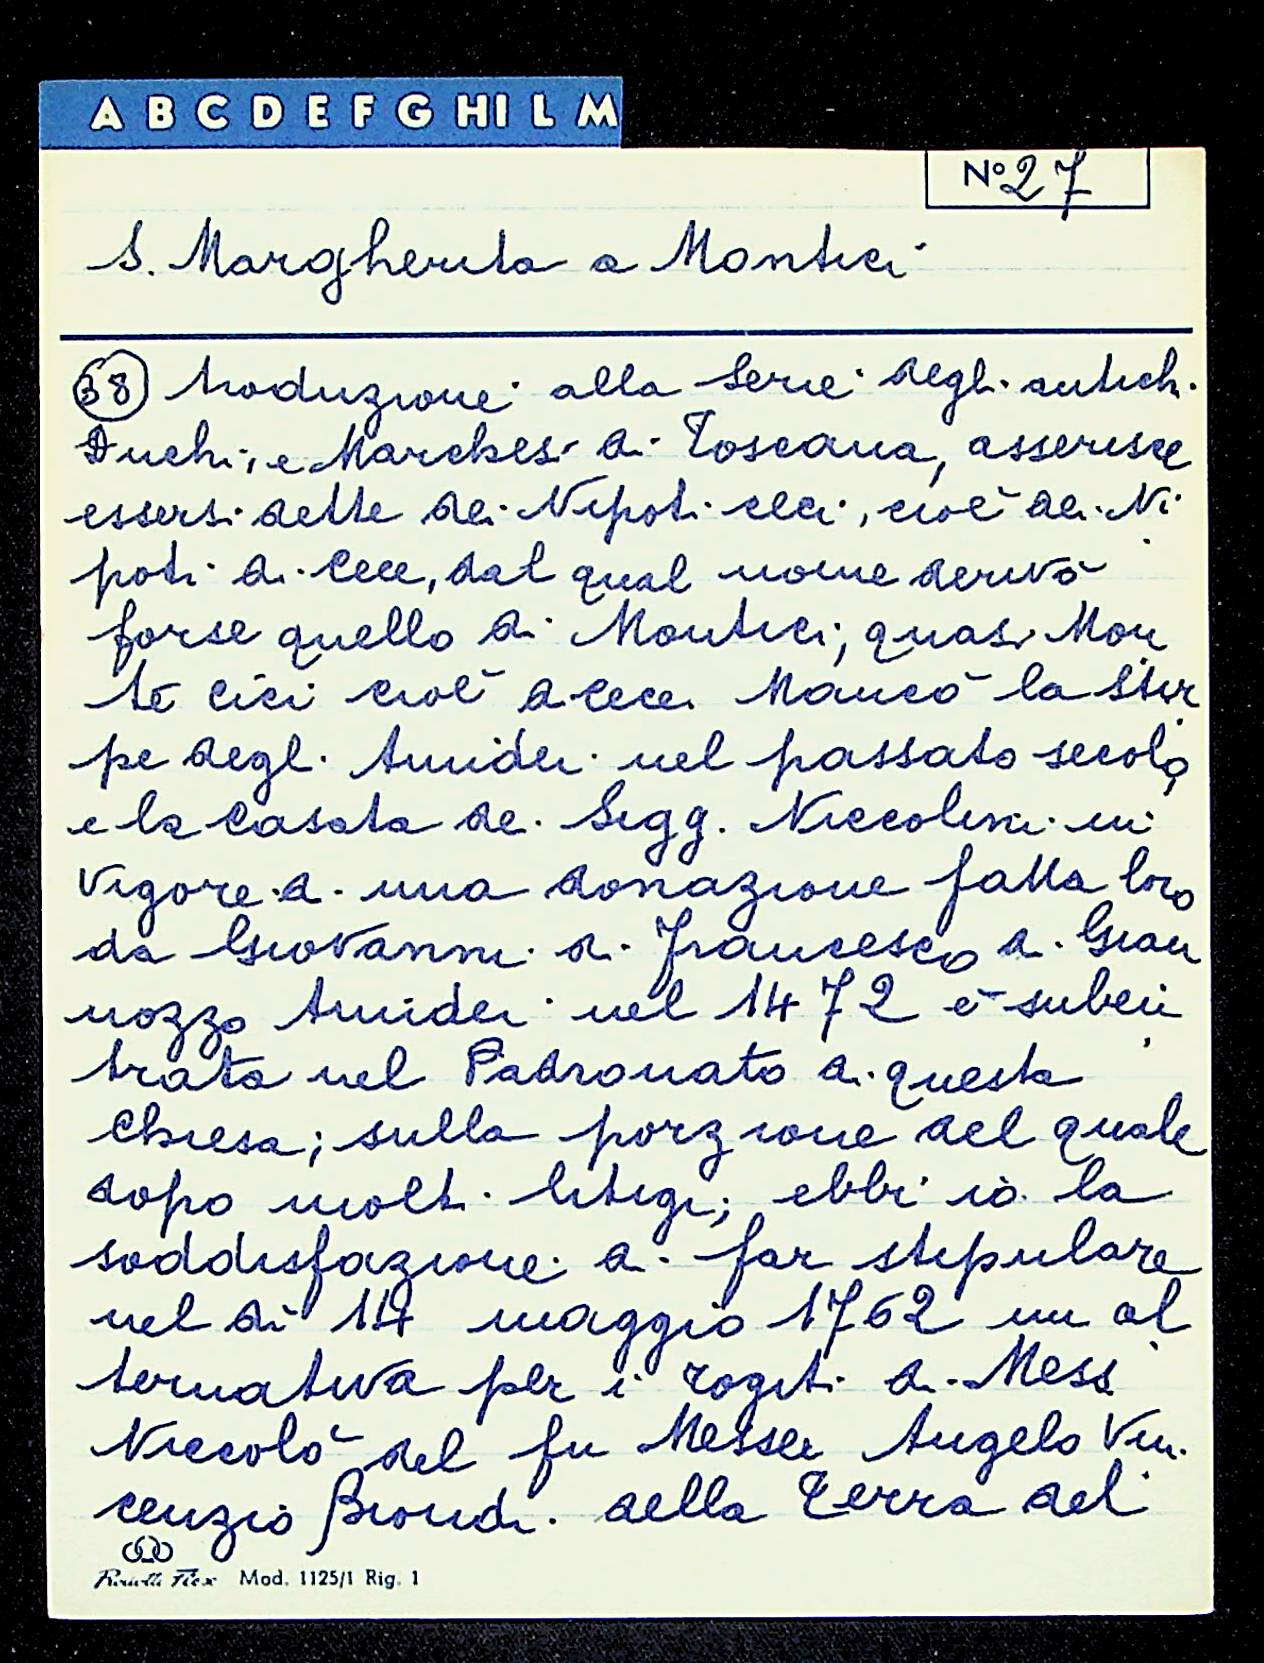 A B C D E F G H I L M
N° 27
S. Margherita a Montici
38 troduzione alla Serie degli antichi
Duchi, e Marchesi di Toscana, asserisce
essersi dette dei Nipoti ceci, cioè dei Ni
poti di Cece, dal qual nome derivò
forse quello di Montici, quasi Mon
te cici cioè di cece. Mancò la Stir
pe degli Amidei nel passato secolo,
e la Casata de. Sigg. Niccolini in
vigore di una donazione fatta loro
da Giovanni di Francesco di Gian
nozzo Amidei nel 1472 è suben
trata nel Padronato di questa
Chiesa; sulla porzione del quale
dopo molti litigi; ebbi iò la
soddisfazione di far stipulare
nel dì 14 maggio 1762 un al
ternativa per i rogiti di Mess.
Niccolò del fu Messer Angelo Vin.
cenzio Biondi della Terra del
Mod. 1125/1 Rig. 1